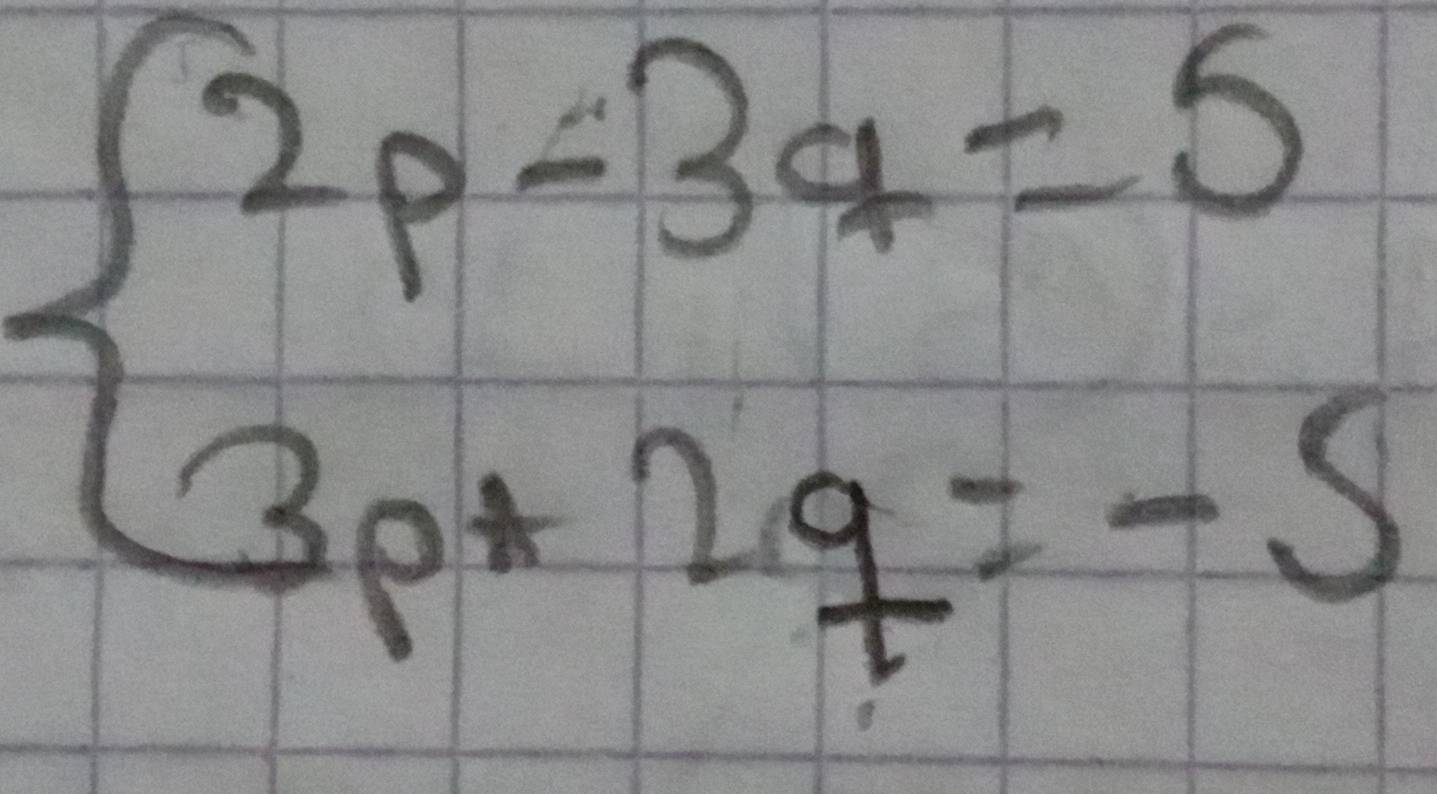 2p-3q=5
3p+2q=-5